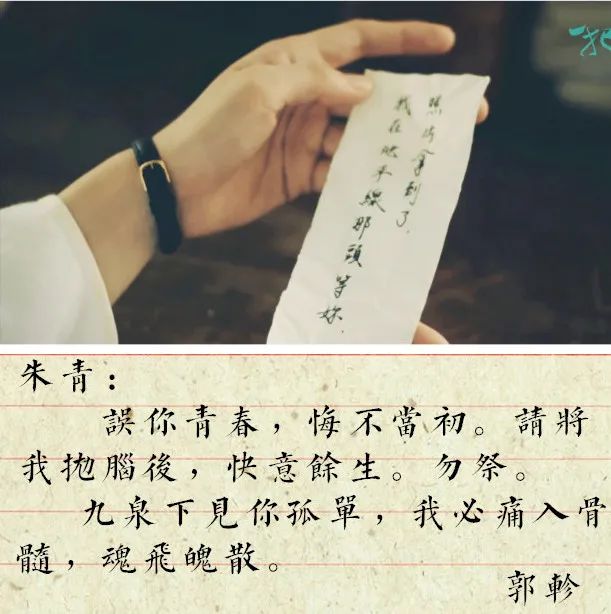 一把
照片拿到了,
我在地平線那頭等妳.
朱青：
誤你青春，悔不當初。請將
我拋腦後，快意餘生。勿祭。
九泉下見你孤單，我必痛入骨
髓，魂飛魄散。
郭軫